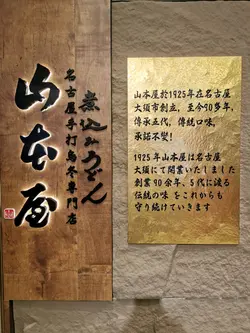 煮込みうどん
名古屋手打烏冬專門店
山本屋
山本屋於1925年在名古屋
大須市創立，至今90多年，
傳承五代，傳統口味，
承諾不變！
1925年山本屋は名古屋
大須にて開業いたしました
創業90余年、5代に渡る
伝統の味をこれからも
守り続けていきます